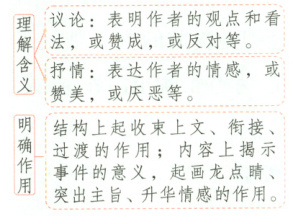 理解含义
议论：表明作者的观点和看
法，或赞成，或反对等。
抒情：表达作者的情感，或
赞美，或厌恶等。
明确作用
结构上起收束上文、衔接、
过渡的作用；内容上揭示
事件的意义，起画龙点睛、
突出主旨、升华情感的作用。